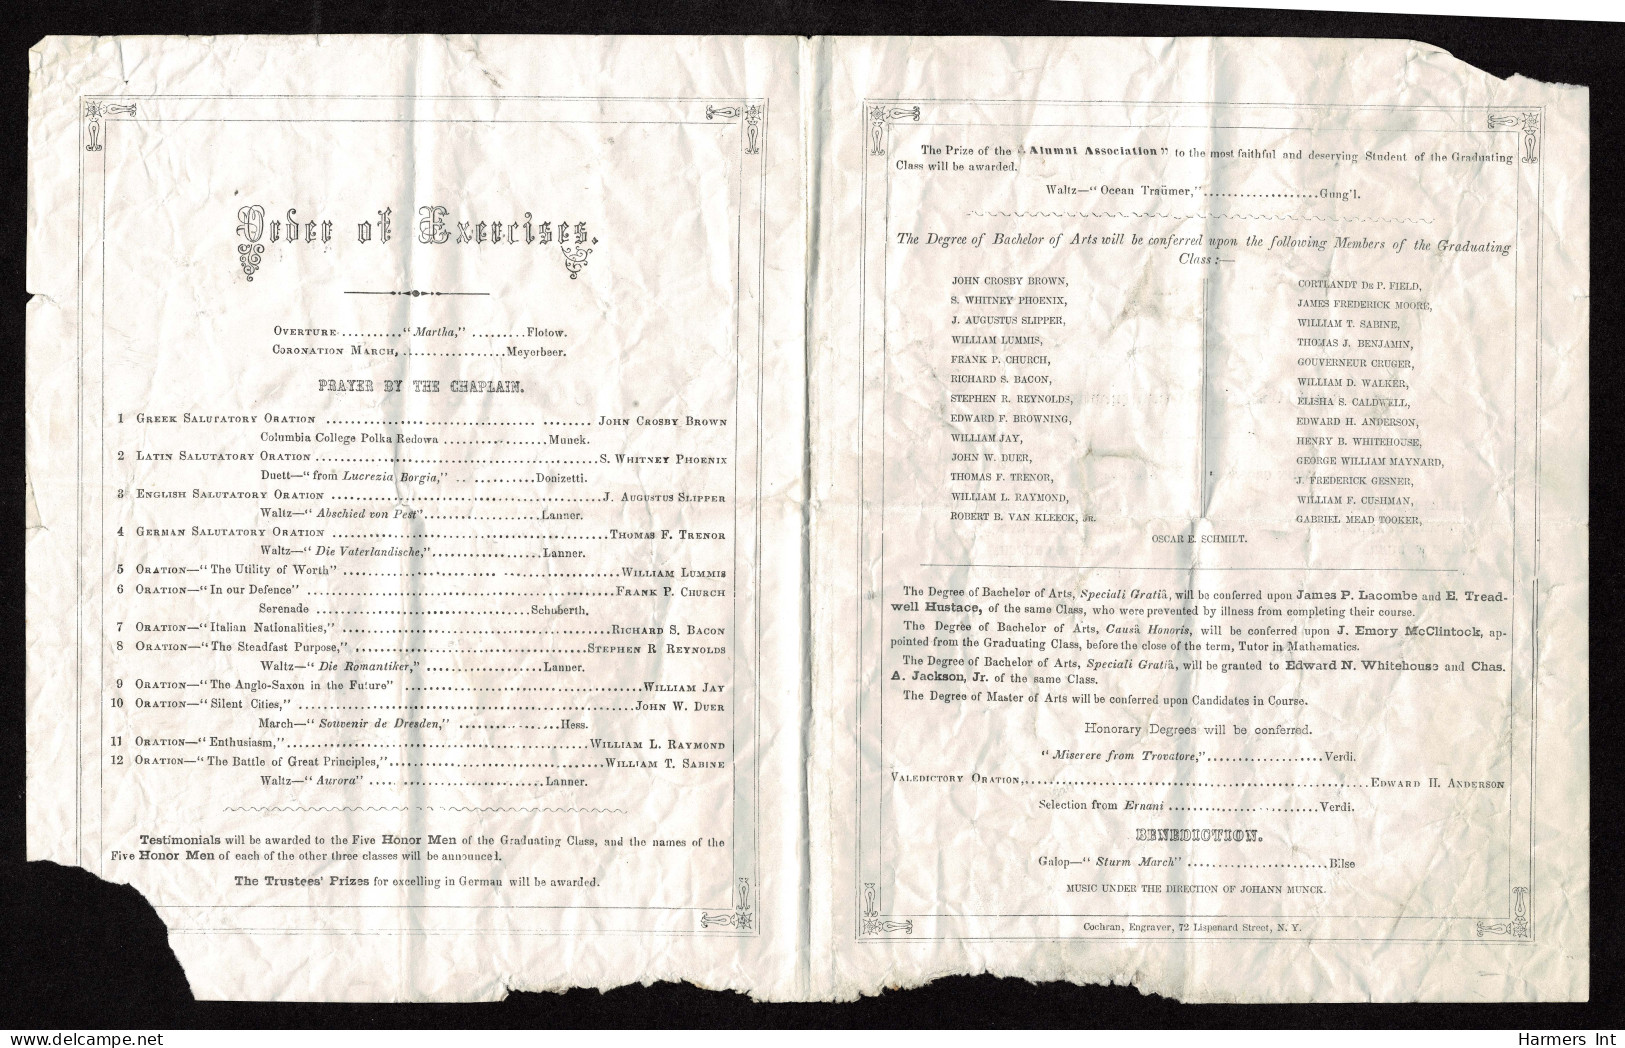 Order of Exercises.
OVERTURE..........“Martha,”.........Flotow.
CORONATION MARCH,..................Meyerbeer.
PRAYER BY THE CHAPLAIN.
1 GREEK SALUTATORY ORATION ........ JOHN CROSBY BROWN
Columbia College Polka Redowa ..................Munck.
2 LATIN SALUTATORY ORATION ........ S. WHITNEY PHOENIX
Duett—“from Lucrezia Borgia,” .............Donizetti.
3 ENGLISH SALUTATORY ORATION ........ J. AUGUSTUS SLIPPER
Waltz—“Abschied von Pest”....................Lanner.
4 GERMAN SALUTATORY ORATION ........ THOMAS F. TRENOR
Waltz—“Die Vaterlandische,”...................Lanner.
5 ORATION—“The Utility of Worth” ........ WILLIAM LUMMIS
6 ORATION—“In our Defence” ........ FRANK P. CHURCH
Serenade ....................................Schuberth.
7 ORATION—“Italian Nationalities,” ........ RICHARD S. BACON
8 ORATION—“The Steadfast Purpose,” ........ STEPHEN R REYNOLDS
Waltz—“Die Romantiker,” ....................Lanner.
9 ORATION—“The Anglo-Saxon in the Future” ........ WILLIAM JAY
10 ORATION—“Silent Cities,” ........ JOHN W. DUER
March—“Souvenir de Dresden,” .................Hess.
11 ORATION—“Enthusiasm,” ........ WILLIAM L. RAYMOND
12 ORATION—“The Battle of Great Principles,” ........ WILLIAM T. SABINE
Waltz—“Aurora” ..............................Lanner.
Testimonials will be awarded to the Five Honor Men of the Graduating Class, and the names of the
Five Honor Men of each of the other three classes will be announced.
The Trustees' Prizes for excelling in German will be awarded.
The Prize of the “Alumni Association” to the most faithful and deserving Student of the Graduating
Class will be awarded.
Waltz—“Ocean Traümer,”...................Gung'l.
The Degree of Bachelor of Arts will be conferred upon the following Members of the Graduating
Class:—
JOHN CROSBY BROWN,
S. WHITNEY PHOENIX,
J. AUGUSTUS SLIPPER,
WILLIAM LUMMIS,
FRANK P. CHURCH,
RICHARD S. BACON,
STEPHEN R. REYNOLDS,
EDWARD F. BROWNING,
WILLIAM JAY,
JOHN W. DUER,
THOMAS F. TRENOR,
WILLIAM L. RAYMOND,
ROBERT B. VAN KLEECK, JR.
CORTLANDT DE P. FIELD,
JAMES FREDERICK MOORE,
WILLIAM T. SABINE,
THOMAS J. BENJAMIN,
GOUVERNEUR CRUGER,
WILLIAM D. WALKER,
ELISHA S. CALDWELL,
EDWARD H. ANDERSON,
HENRY B. WHITEHOUSE,
GEORGE WILLIAM MAYNARD,
J. FREDERICK GESNER,
WILLIAM F. CUSHMAN,
GABRIEL MEAD TOOKER,
OSCAR E. SCHMILT.
The Degree of Bachelor of Arts, Speciali Gratiâ, will be conferred upon James P. Lacombe and E. Tread-
well Hustace, of the same Class, who were prevented by illness from completing their course.
The Degree of Bachelor of Arts, Causâ Honoris, will be conferred upon J. Emory McClintock, ap-
pointed from the Graduating Class, before the close of the term, Tutor in Mathematics.
The Degree of Bachelor of Arts, Speciali Gratiâ, will be granted to Edward N. Whitehouse and Chas.
A. Jackson, Jr. of the same Class.
The Degree of Master of Arts will be conferred upon Candidates in Course.
Honorary Degrees will be conferred.
“Miserere from Trovatore,”...................Verdi.
VALEDICTORY ORATION, ........ EDWARD H. ANDERSON
Selection from Ernani .........................Verdi.
BENEDICTION.
Galop—“Sturm March” .......................Bilse
MUSIC UNDER THE DIRECTION OF JOHANN MUNCK.
Cochran, Engraver, 72 Lispenard Street, N. Y.
Harmers Int